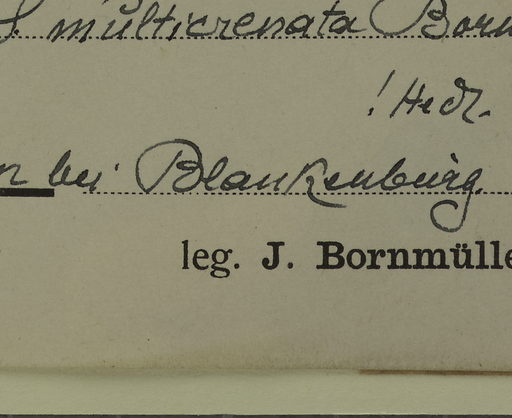 f. multicrenata Born
! Hedl.
n bei Blankenburg.
leg. J. Bornmülle